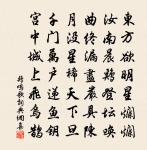 東方欲明星爛爛
汝南晨雞登壇喚
曲終漏盡嚴具陳
月沒星稀天下旦
千門萬戶遞魚鑰
宮中城上飛烏鵲